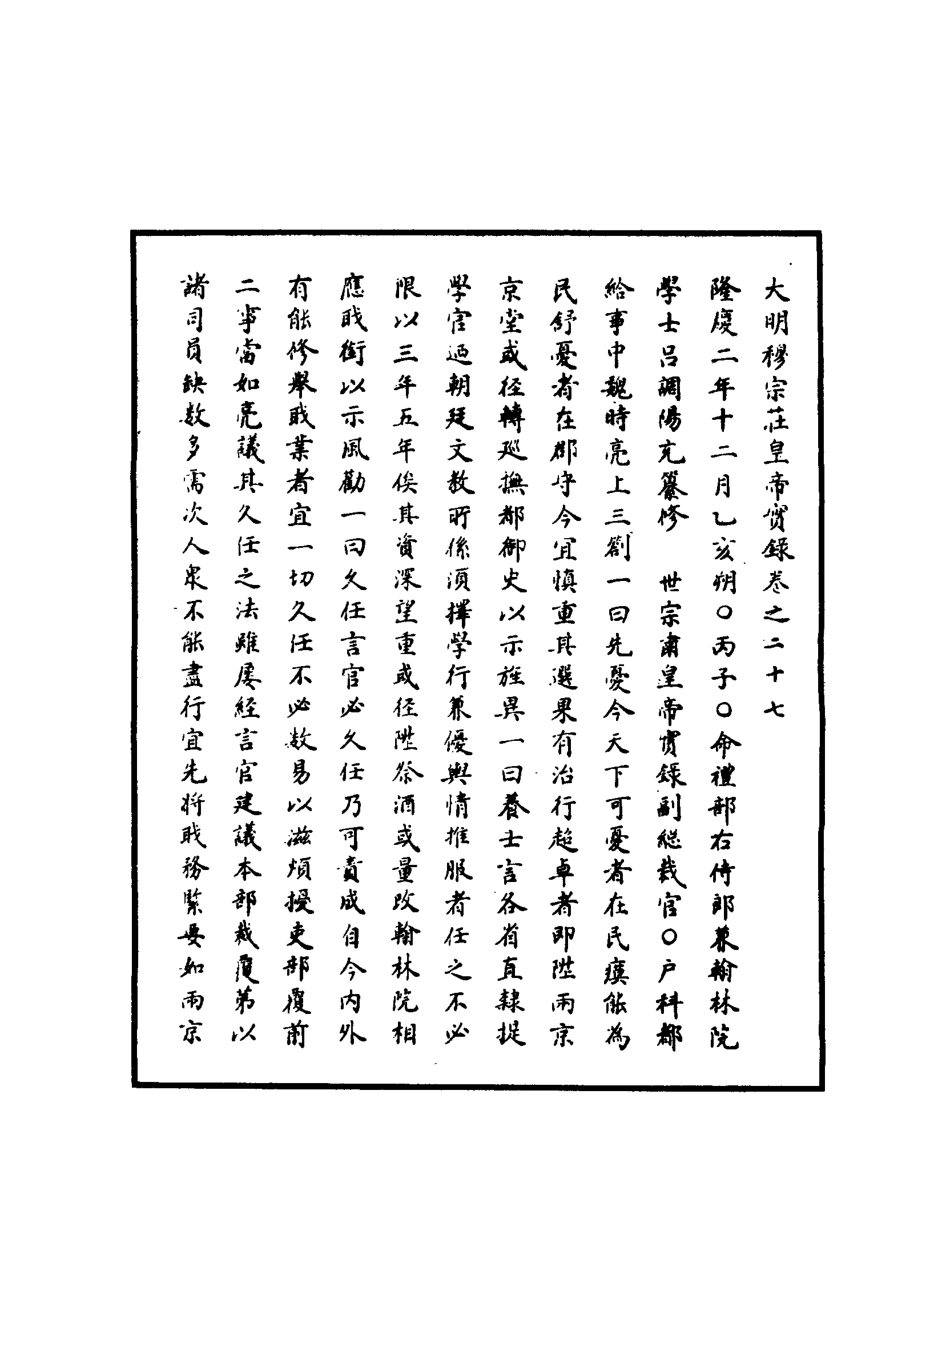 大明穆宗莊皇帝實錄卷之二十七
隆慶二年十二月乙亥朔○丙子○命禮部右侍郎兼翰林院
學士呂調陽充纂修　世宗肅皇帝實錄副総裁官○户科都
給事中魏時亮上三劄一曰先憂今天下可憂者在民瘼能為
民舒憂者在郡守今宜慎重其選果有治行超卓者即陞兩京
京堂或径轉廵撫都御史以示旌異一曰養士言各省直隸提
學官廼朝廷文教所係湏擇學行兼優輿情推服者任之不必
限以三年五年俟其資深望重或径陞祭酒或量改翰林院相
應戝銜以示風勸一曰久任言官必久任乃可責成自今内外
有能修舉戝業者宜一切久任不必数易以滋煩擾吏部覆前
二事當如亮議其久任之法雖屡経言官建議本部裁覆苐以
諸司員缺数多需次人衆不能盡行宜先将戝務緊要如兩京